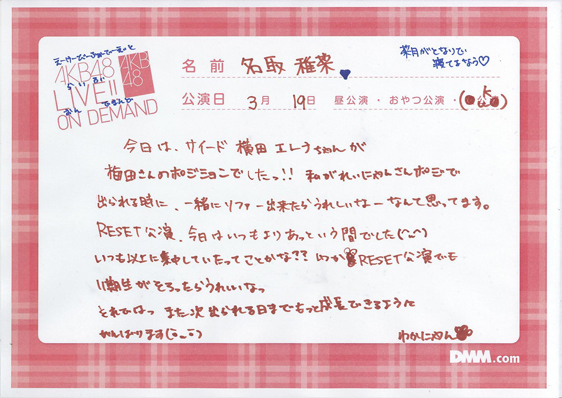 えーけーびーふぉーてぃーえいと
AKB48
らいぶ
LIVE!!
おん でまんど
ON DEMAND
AKB
48
名前 名取 稚菜
菜月がとなりで
寝てるなう♡
公演日 3月 19日 昼公演・おやつ公演・
今日は、サイード 横田 エレナちゃんが
梅田さんのポジションでしたっ!! 私がれいにゃんさんポジで
出られる時に、一緒にリファー出来たらうれしいなーなんて思ってます。
RESET公演、今日はいつもよりあっという間でした
いつも以上に集中していたってことかな?? いつかRESET公演でも
11期生がそろったらうれしいなっ
それではっ また次出られる日までもっと成長できるように
がんばります
わかにゃん
DMM.com